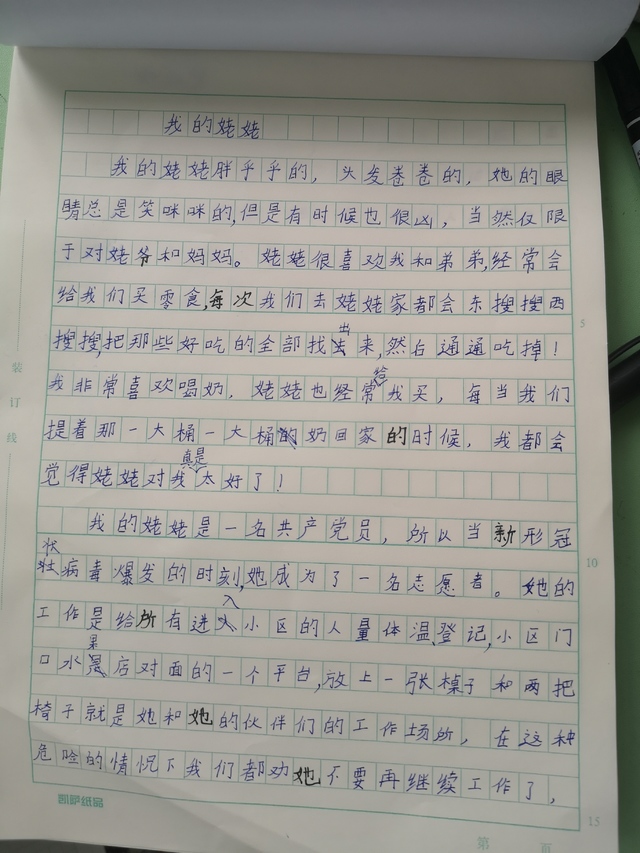 我的姥姥
我的姥姥胖乎乎的，头发卷卷的，她的眼
睛总是笑咪咪的,但是有时候也很凶，当然仅限
于对姥爷和妈妈。姥姥很喜欢我和弟弟,经常会
给我们买零食,每次我们去姥姥家都会东搜搜西
搜搜,把那些好吃的全部找出来,然后通通吃掉！
我非常喜欢喝奶，姥姥也经常给我买，每当我们
提着那一大桶一大桶奶回家的时候，我都会
觉得姥姥对我真是太好了！
我的姥姥是一名共产党员，所以当新形冠
状病毒爆发的时刻,她成为了一名志愿者。她的
工作是给所有进入小区的人量体温,登记,小区门
口水果店对面的一个平台,放上一张桌子和两把
椅子就是她和她的伙伴们的工作场所，在这种
危险的情况下我们都劝她不要再继续工作了，
装订线
5
10
15
第 页